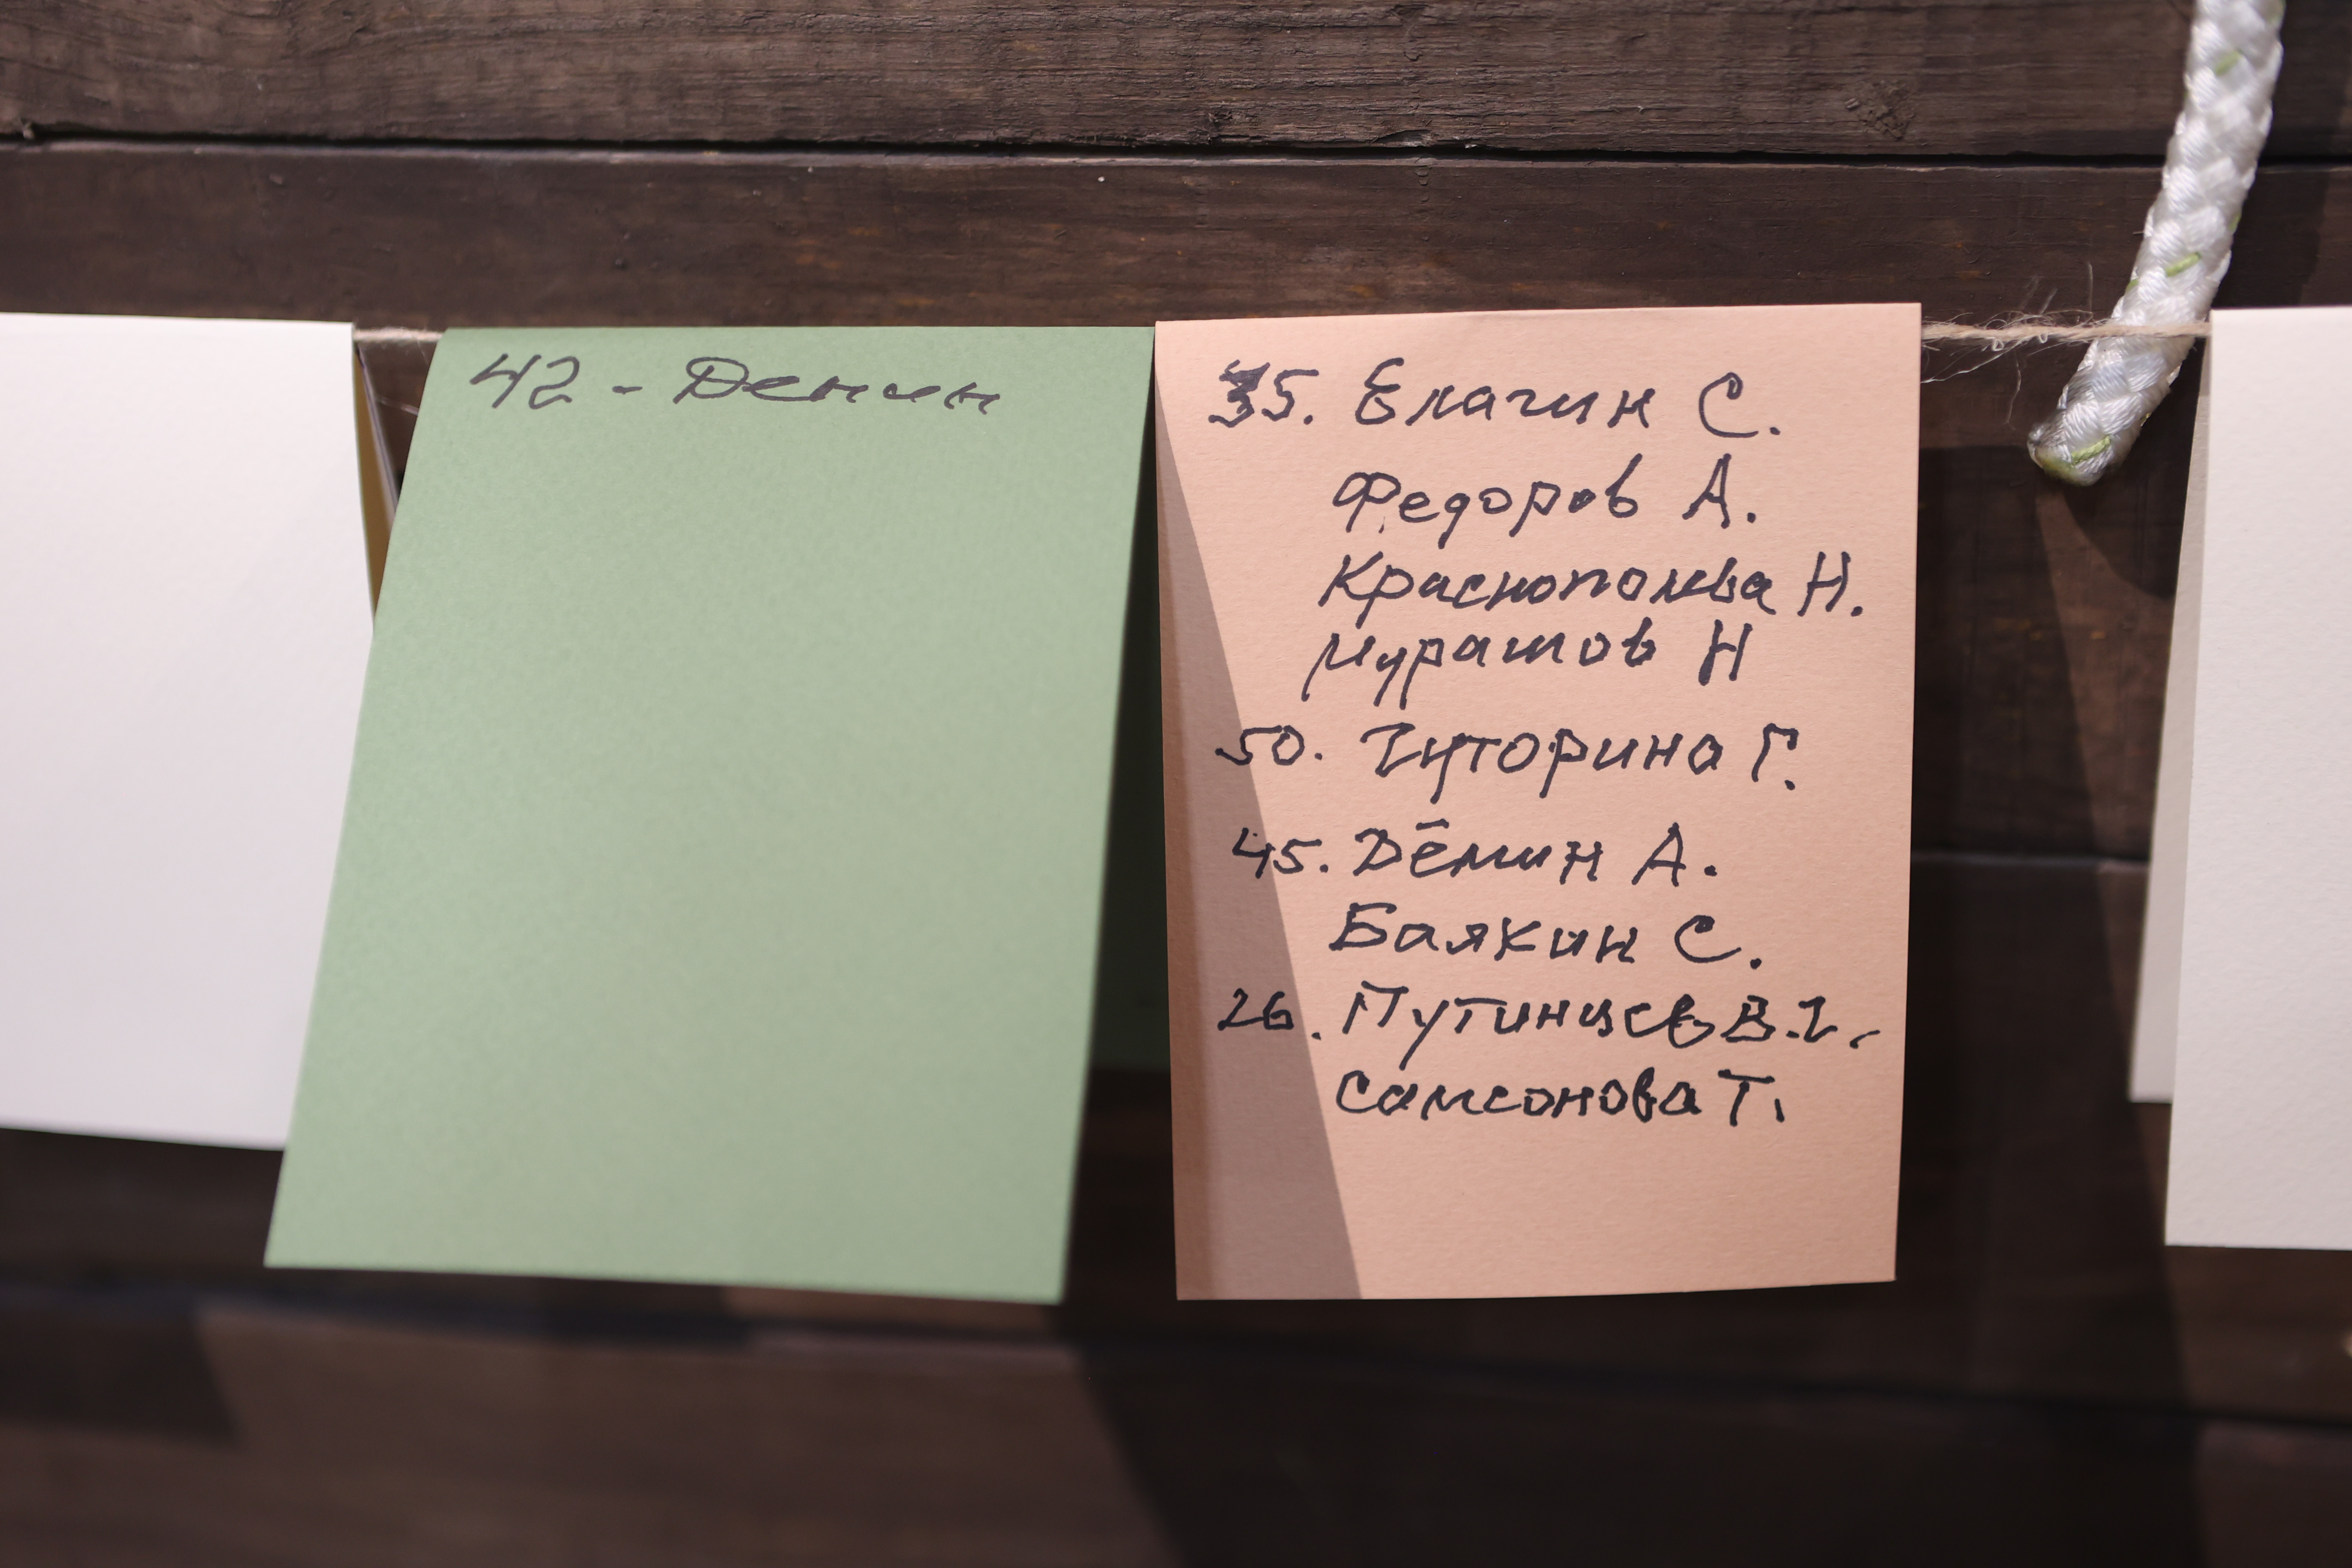 42 - Демин
35. Елагин С.
Федоров А.
Н.
Мурашов Н
50. Чуторина Г.
45. Дёмин А.
Баякин С.
26. Путинцев В.
Самсонова Т.